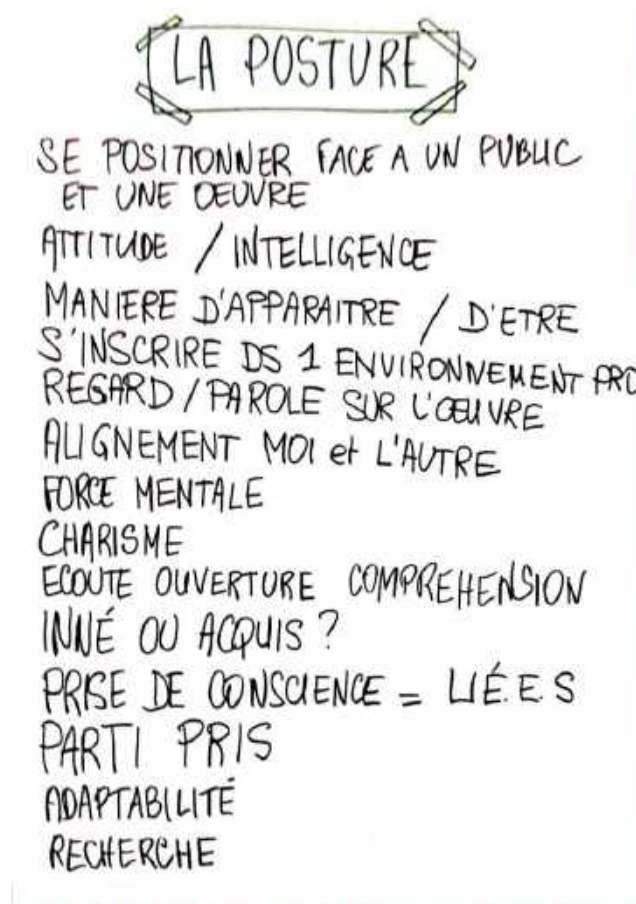 LA POSTURE
SE POSITIONNER FACE A UN PUBLIC
ET UNE OEUVRE
ATTITUDE / INTELLIGENCE
MANIERE D'APPARAITRE / D'ETRE
S'INSCRIRE DS 1 ENVIRONNEMENT PRO
REGARD / PAROLE SUR L'OEUVRE
ALIGNEMENT MOI et L'AUTRE
FORCE MENTALE
CHARISME
ECOUTE OUVERTURE COMPREHENSION
INNÉ OU ACQUIS ?
PRISE DE CONSCIENCE = LIÉ.E.S
PARTI PRIS
ADAPTABILITÉ
RECHERCHE